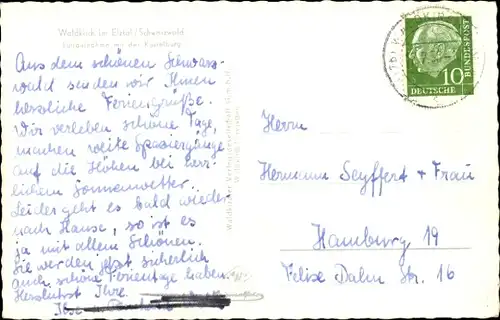 Waldkirch im Elztal / Schwarzwald
mit der Kastelburg
Aus dem schönen Schwarz-
wald senden wir Ihnen
herzliche Feriengrüße.
Wir verleben schöne Tage,
machen weite Spaziergänge
auf die Höhen bei herr-
lichem Sonnenwetter.
Leider geht es bald wieder
nach Hause, so ist es
ja mit allem Schönen.
Sie werden jetzt sicherlich
auch schöne Ferientage haben.
Herzlichst Ihre
Ilse
10
DEUTSCHE
BUNDESPOST
Herrn
Hermann Seyffert + Frau
Hamburg 19
Felix Dahn Str. 16